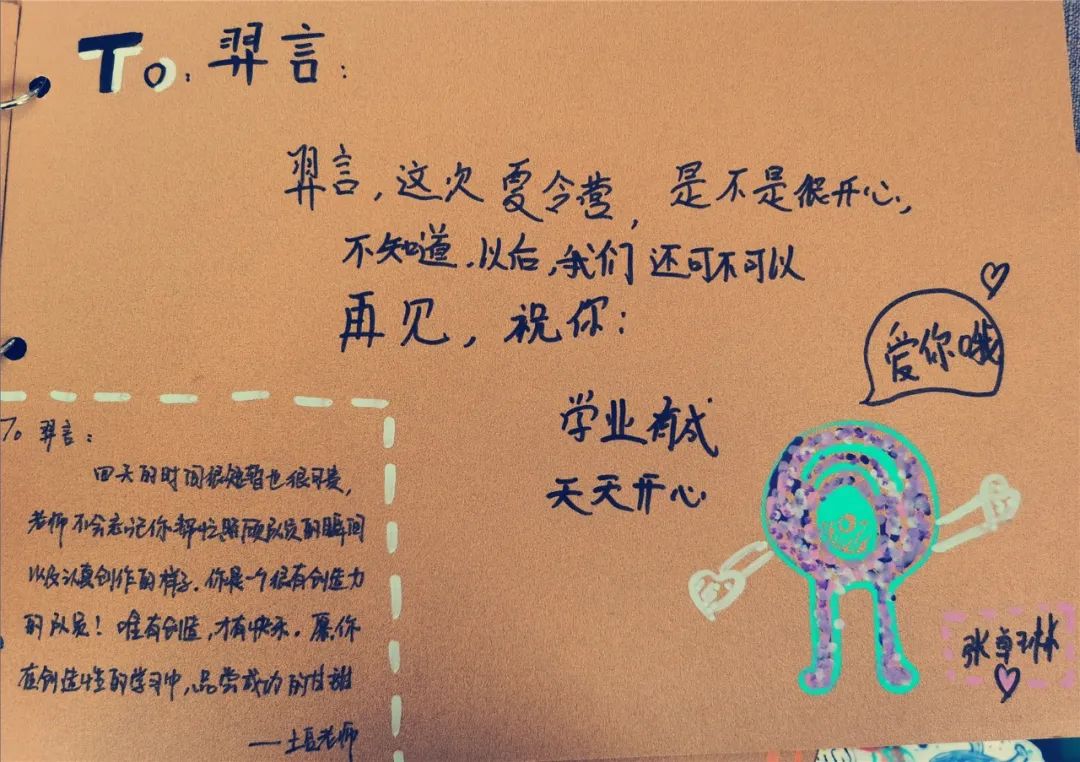 To: 羿言:
羿言,这次夏令营,是不是很开心,
不知道,以后,我们还可不可以
再见,祝你:
学业有成
天天开心
爱你哦
张卓琳
To 羿言:
四天的时间很短暂也很可贵,
老师不会忘记你帮忙照顾队员的瞬间
以及认真创作的样子.你是一个很有创造力
的队员!唯有创造,才有快乐.愿你
在创造性的学习中,品尝成功的甘甜
——土豆老师